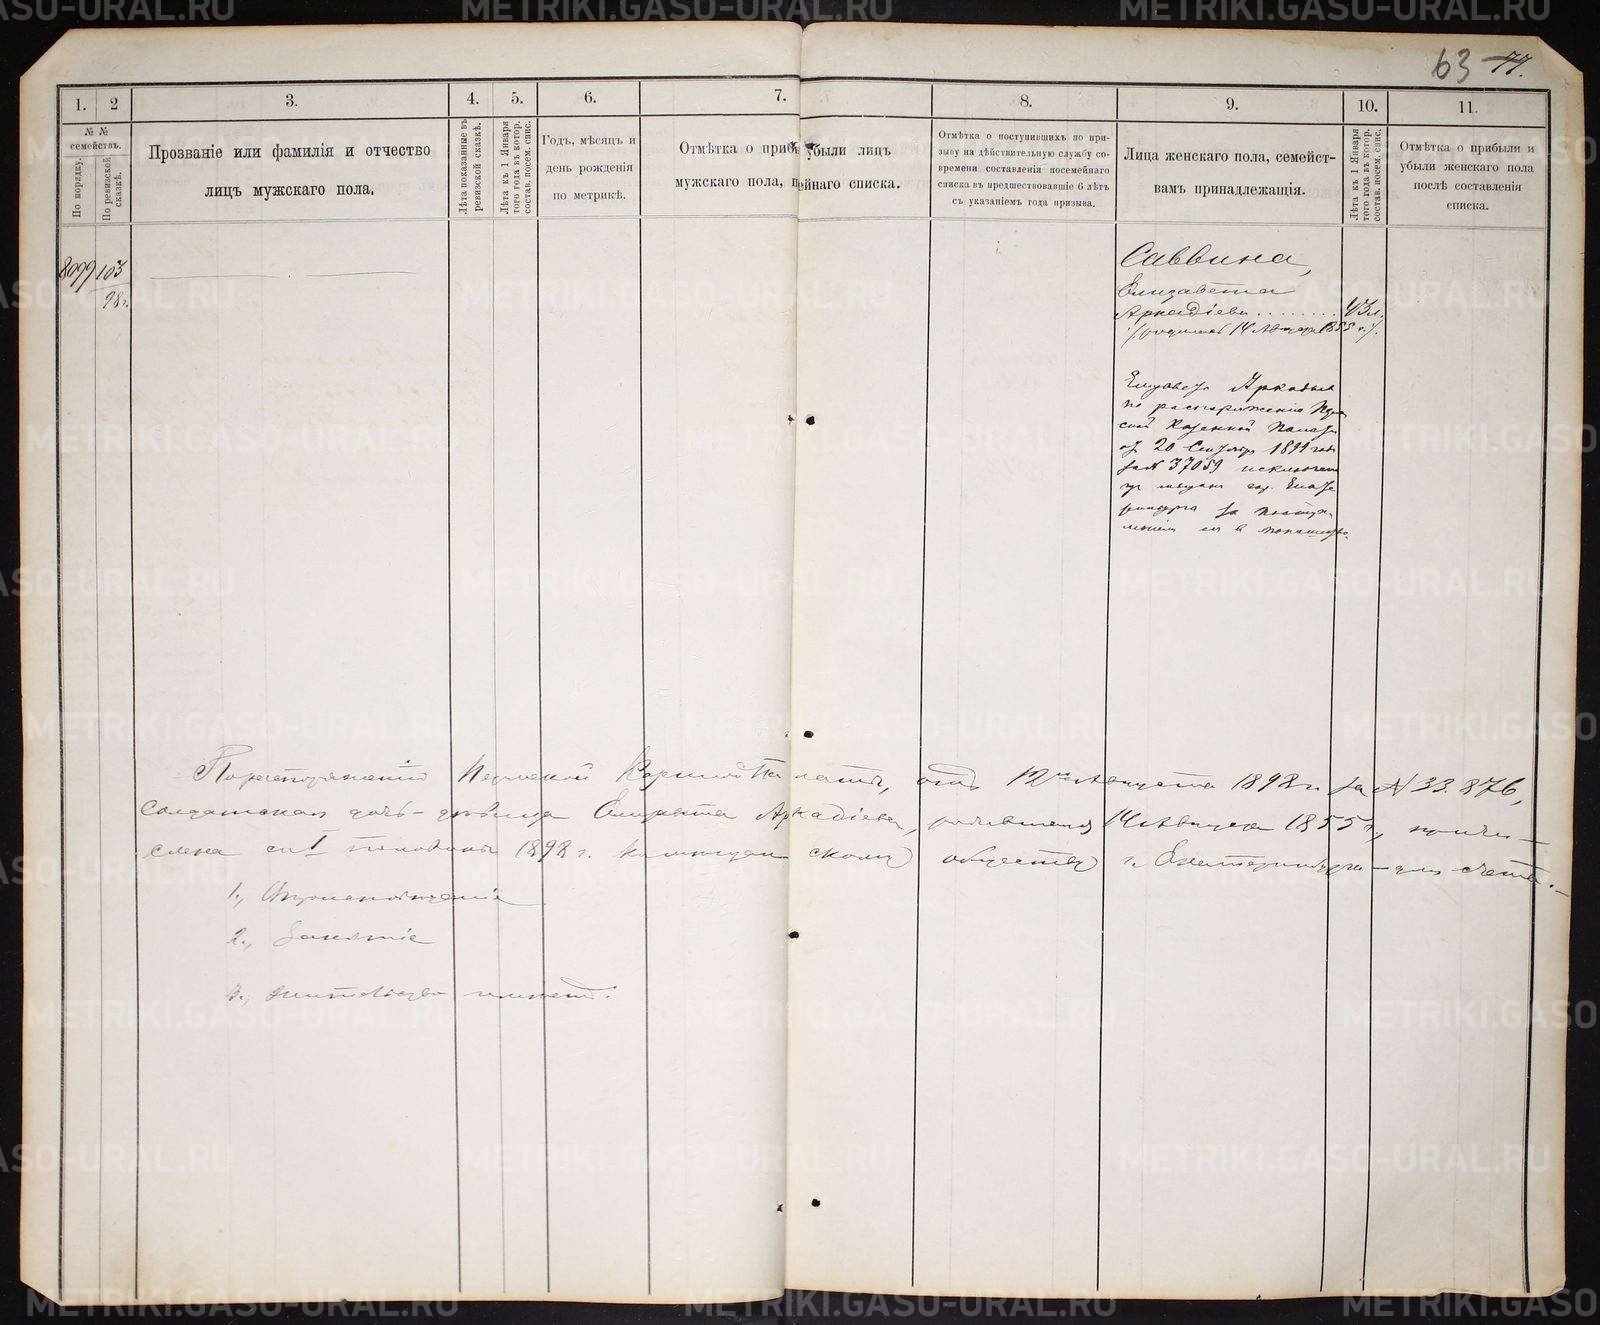 63 77.
1. 2 3. 4. 5. 6. 7. 8. 9. 10. 11.
№ № семействъ.
По порядку.
По ревизской сказкѣ.
Прозваніе или фамилія и отчество
лицъ мужскаго пола.
Лѣта показанные въ
ревизской сказкѣ.
Лѣта къ 1 Января
того года въ котор.
состав. посем. спис.
Годъ, мѣсяцъ и
день рожденія
по метрикѣ.
Отмѣтка о приб убыли лицъ
мужскаго пола, ейнаго списка.
Отмѣтка о поступившихъ по при-
зыву на дѣйствительную службу со-
времени составленія посемейнаго
списка въ предшествовавшіе 6 лѣтъ
съ указаніемъ года призыва.
Лица женскаго пола, семейст-
вамъ принадлежащія.
Лѣта къ 1 Января
того года въ котор.
состав. посем. спис.
Отмѣтка о прибыли и
убыли женскаго пола
послѣ составленія
списка.
8099 103
98 г.
Саввина,
Елизавета
Аркадіева ........ 43 л.
(родилась 14 Августа 1855 г.).
Елизавета Аркадьева
по распоряженію Перм
ской Казенной Палаты
от 20 Сентября 1899 года
за № 37059 исключена
изъ мещанъ гор. Екате
ринбурга за поступ
леніем ея в монашество.
По распоряженію Пермской Казенной Палаты, отъ 12го Августа 1898 г. за № 33.876,
Солдатская дочь - дѣвица Елизавета Аркадіева, родившаяся 14 Августа 1855 г., причи-
слена съ 1 половины 1898 г. къ мещанскому обществу г. Екатеринбурга - для счета.-
1., Вѣроисповѣданіе
2., Занятіе
3., жительство имѣетъ:
METRIKI.GASO-URAL.RU